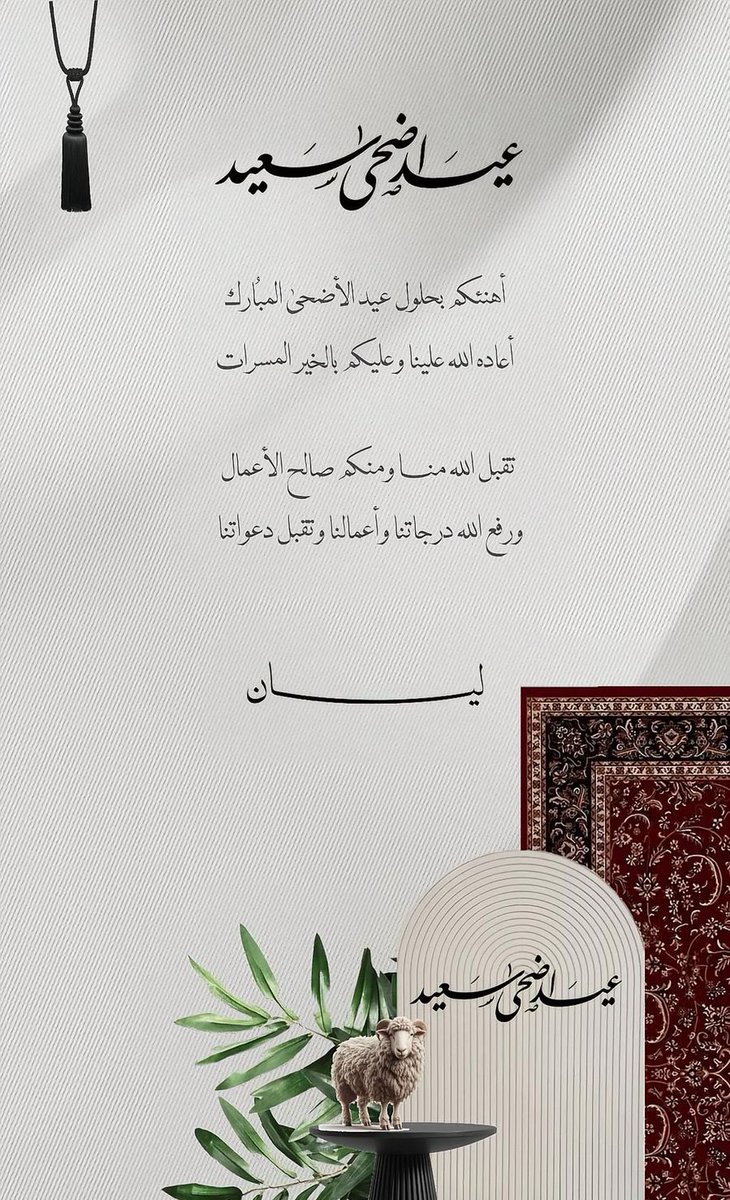 عيد اضحى سعيد
أهنئكم بحلول عيد الأضحىٰ المبُارك
أعاده الله علينا وعليكم بالخير المسرات
تقبل الله منا ومنكم صالح الأعمال
ورفع الله درجاتنا وأعمالنا وتقبل دعواتنا
ليان
عيد اضحى سعيد